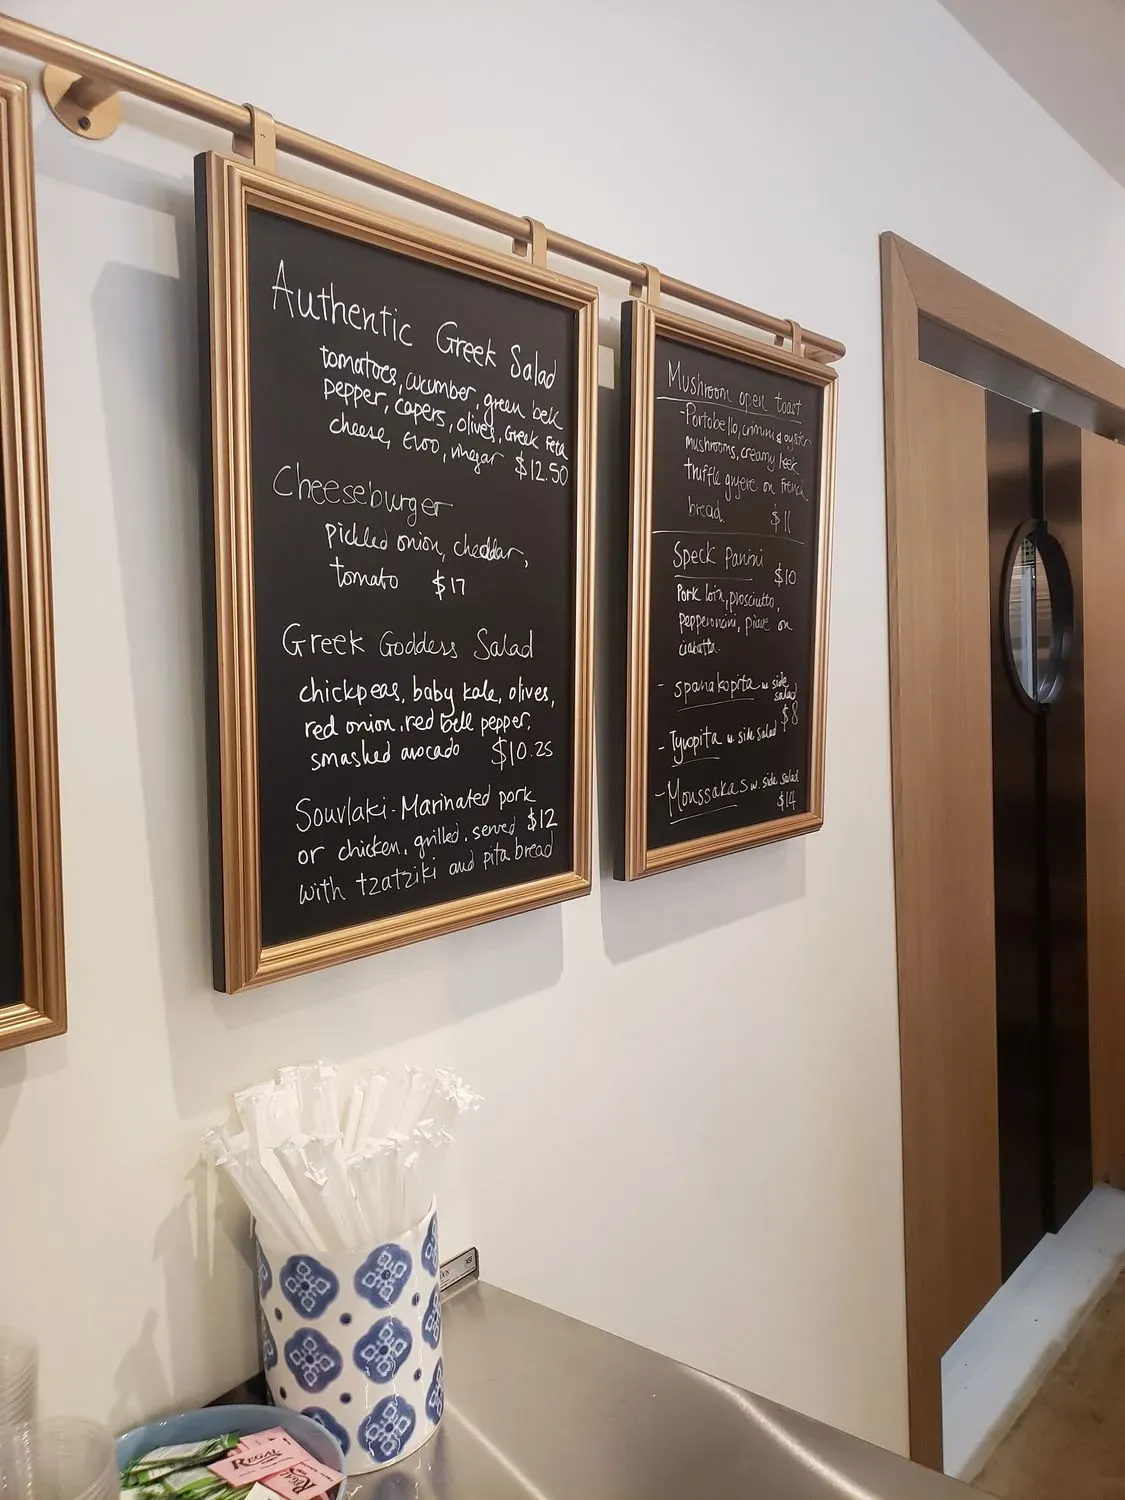 Authentic Greek Salad
tomatoes, cucumber, green bell
pepper, capers, olives, Greek Feta
cheese, EVOO, vinegar $12.50
Cheeseburger
pickled onion, cheddar,
tomato $17
Greek Goddess Salad
chickpeas, baby kale, olives,
red onion, red bell pepper,
smashed avocado $10.25
Souvlaki - Marinated pork
or chicken, grilled, served $12
with tzatziki and pita bread
Mushroom open toast
- Portobello, crimini & oyster
mushrooms, creamy leek
truffle gruyere on French
bread. $11
Speck Panini
$10
Pork loin, prosciutto,
pepperoncini, piave on
ciabatta.
- spanakopita w side
salad
$8
- Tyropita w. side salad
- Moussakas w. side salad
$14
REGAL
REGAL